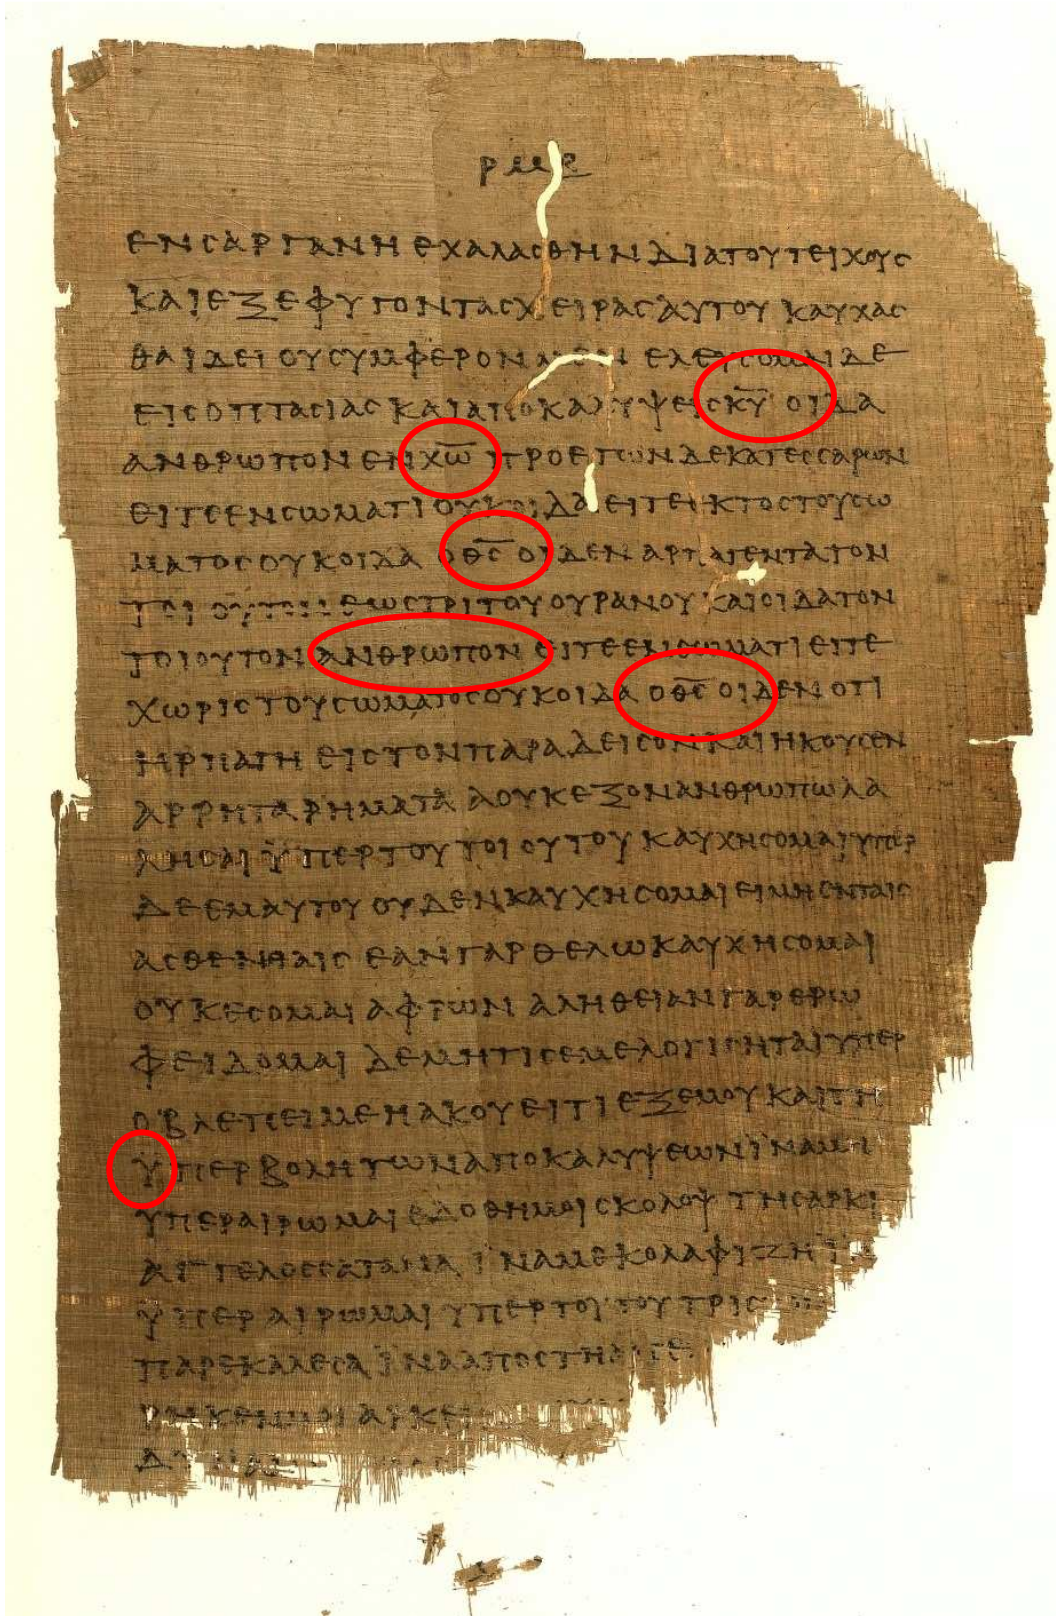 ρμε
ενσαργανηεχαλασθηνδιατουτειχους
καιεξεφυγοντασχειραςαυτουκαυχας
θαιδειουσυμφερονμενελευσομαιδε
εισοπτασιαςκαιαποκαλυψειςκ̅υ̅ οιδα
ανθρωπονενχ̅ω̅ προετωνδεκατεσσαρων
ειτεενσωματιουκοιδαειτεεκτοςτουσω
ματοςουκοιδα οθ̅ς̅ οιδεναρπαγεντατον
τοιουτονεωςτριτουουρανουκαιοιδατον
τοιουτονανθρωπον ειτεενσωματιειτε
χωριςτουσωματοςουκοιδα οθ̅ς̅ οιδενοτι
ηρπαγηειςτονπαραδεισονκαιηκουσεν
αρρηταρηματα αουκεξονανθρωπωλα
λησαιϋπερτουτοιουτουκαυχησομαιυπερ
δεεμαυτουουδενκαυχησομαιειμηενταις
ασθενηαις εανγαρθελωκαυχησομαι
ουκεσομαιαφρων αληθειανγαρερω
φειδομαι δεμητιςεμελογισηταιυπερ
οβλεπειμεηακουειτιεξεμουκαιτη
ϋπερβολητωναποκαλυψεωνϊναμη
υπεραιρωμαιεδοθημοισκολοψ τησαρκι
αγγελοςσατανα ϊναμεκολαφιζηϊ
ϋπεραιρωμαιυπερτουτουτρις
παρεκαλεσαϊνααποστη
ρηκενμοιαρκε